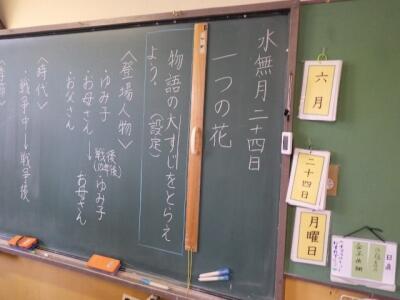 水無月二十四日
一つの花
物語の大すじをとらえ
よう。(設定)
〈登場人物〉
・ゆみ子
・お母さん→戦後(10年後)ゆみ子
お母さん
・お父さん
〈時代〉
・戦争中→戦争後
六月
二十四日
月曜日
日直